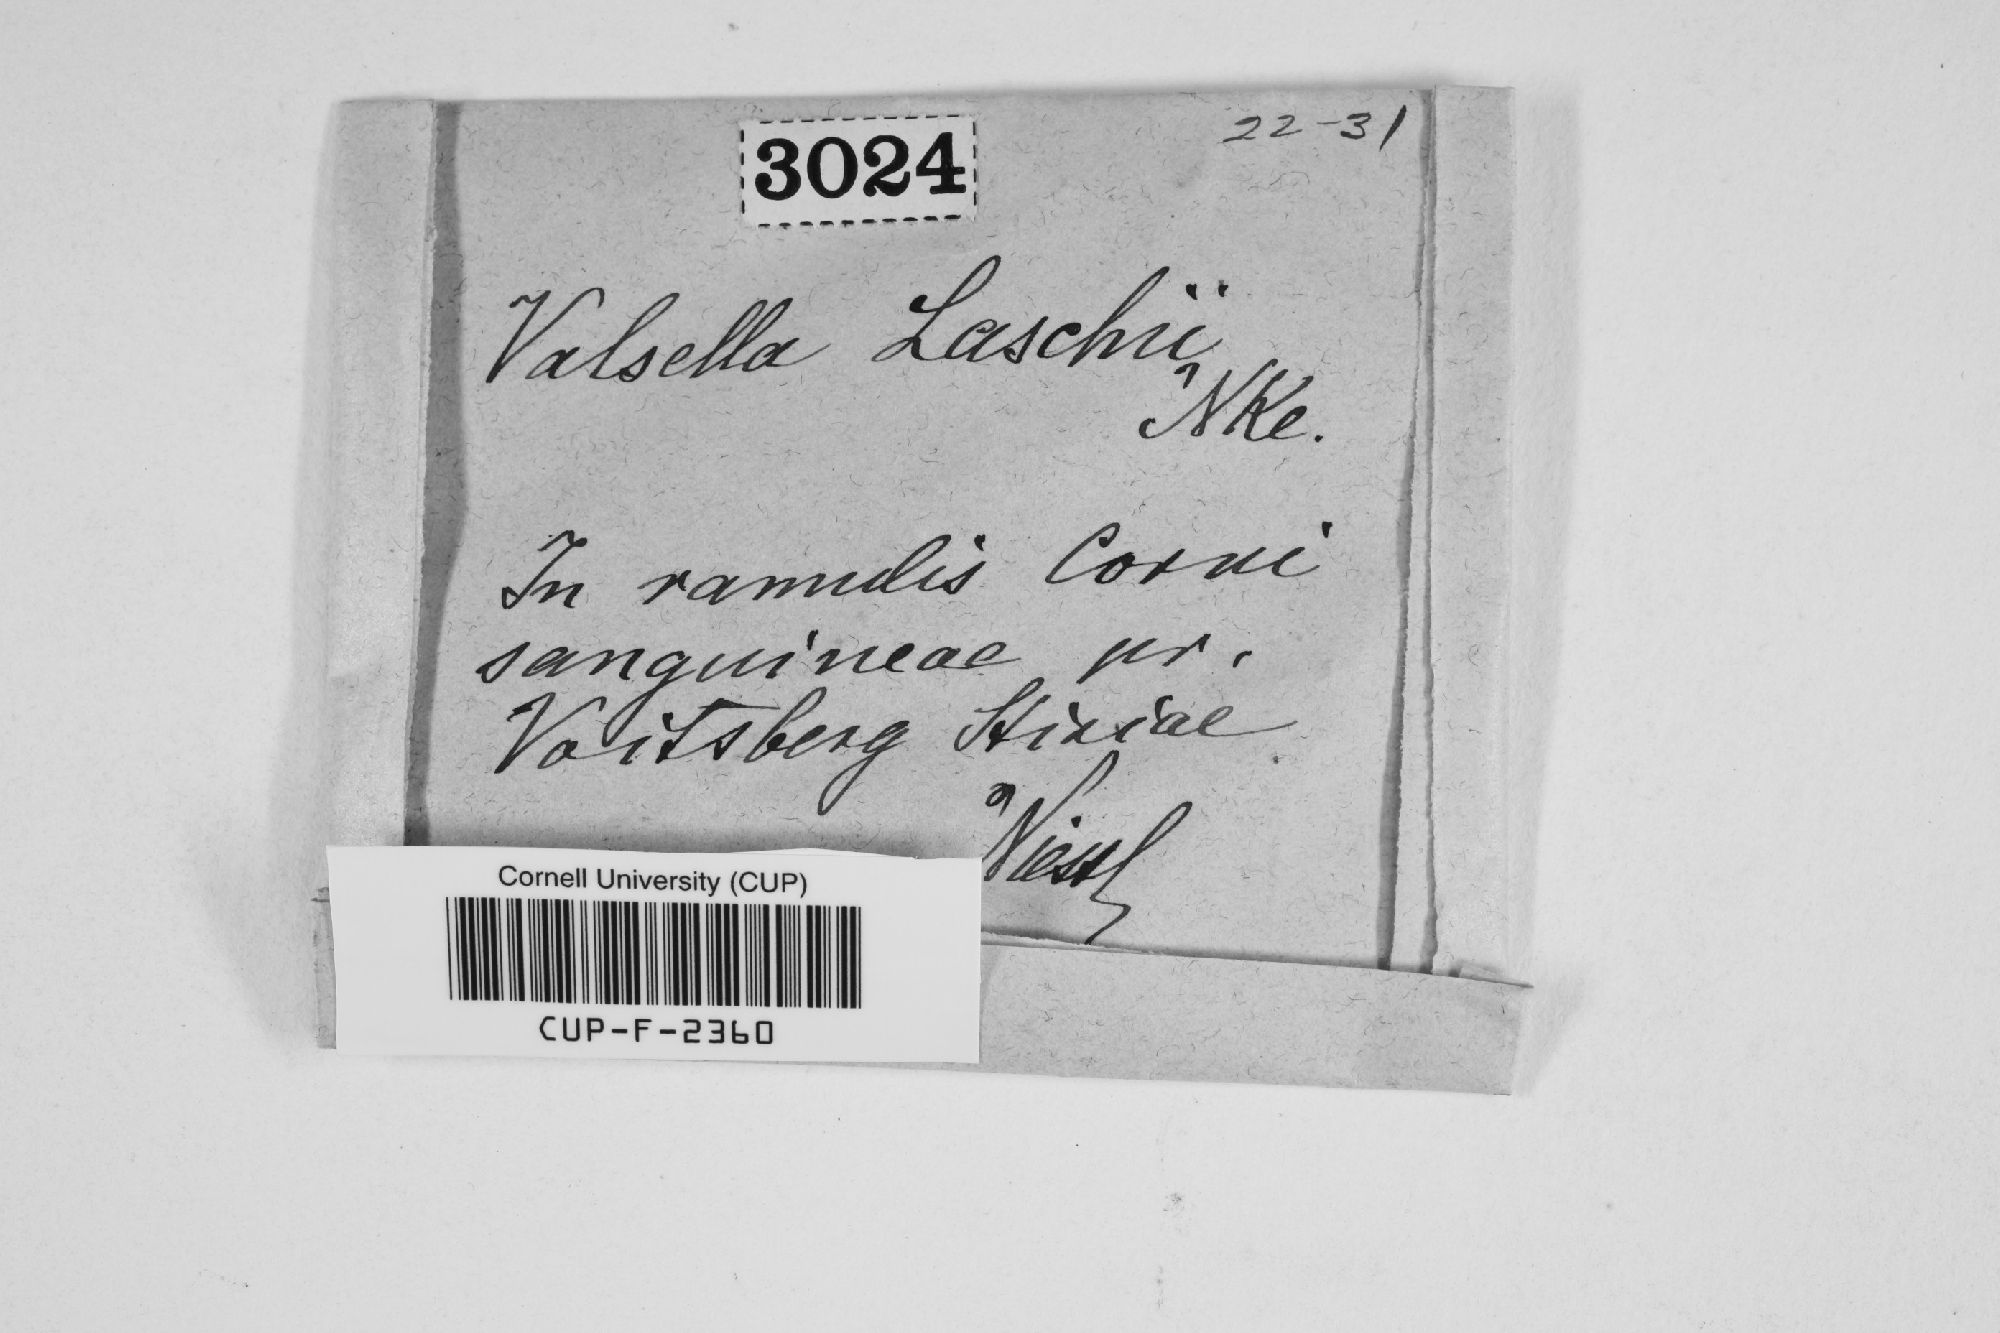 22-31
3024
Valsella Laschii
NKe.
In ramulis Corni
sanguineae pr.
Voitsberg Stiriae
Niessl
Cornell University (CUP)
CUP-F-2360